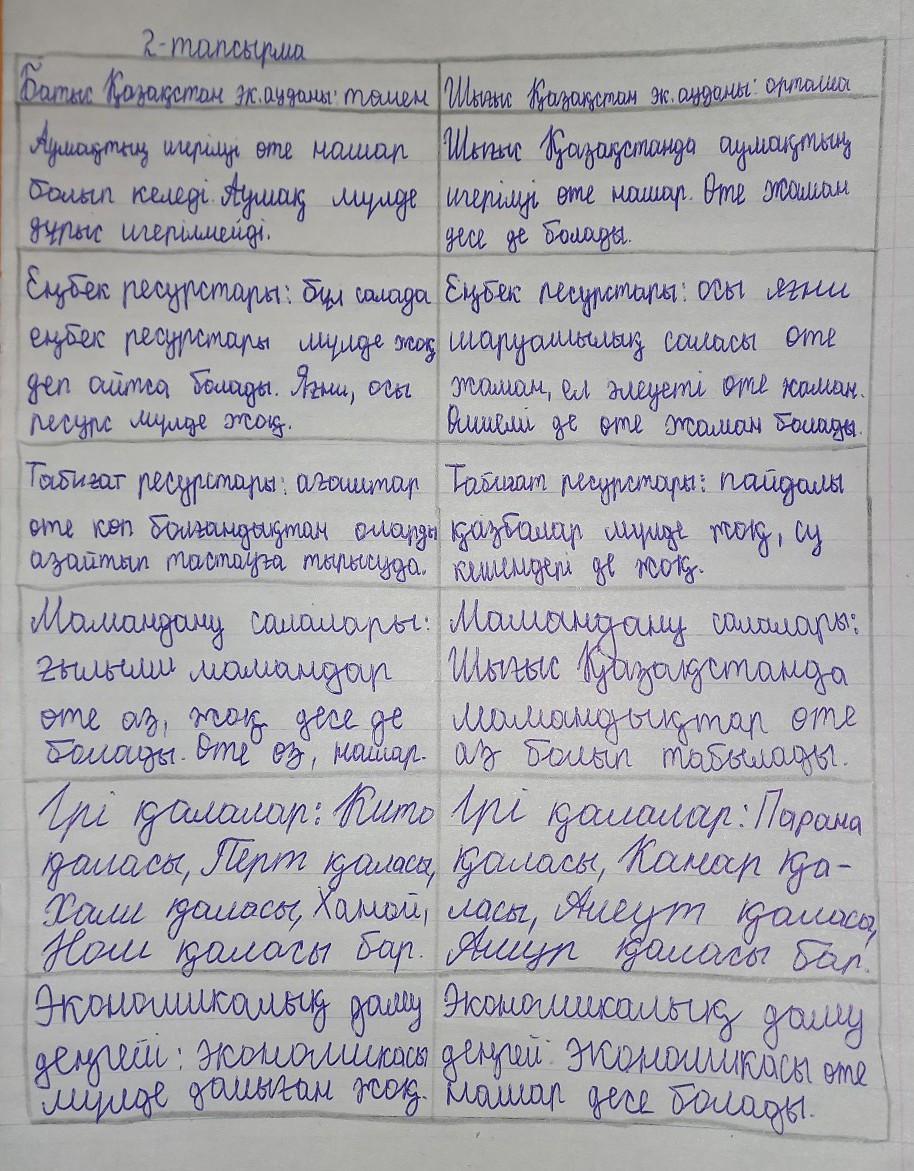 2-тапсырма
Батыс Қазақстан эк.ауданы: төмен
Аумақтың игерімі өте нашар
болып келеді. Аумақ мүлде
дұрыс игерілмейді.
Еңбек ресурстары: бұл салада
еңбек ресурстары мүлде жоқ
деп айтса болады. Яғни, осы
ресурс мүлде жоқ.
Табиғат ресурстары: ағаштар
өте көп болғандықтан оларды
азайтып тастауға тырысуда.
Мамандану салалары:
ғылыми мамандар
өте аз, жоқ десе де
болады. Өте аз, нашар.
Ірі қалалар: Кито
қаласы, Перт қаласы,
Хали қаласы, Ханой,
Ном қаласы бар.
Экономикалық даму
деңгейі: экономикасы
мүлде дамыған жоқ.
Шығыс Қазақстан эк.ауданы: орташа
Шығыс Қазақстанда аумақтың
игерімі өте нашар. Өте жаман
десе де болады.
Еңбек ресурстары: осы яғни
шаруашылық саласы өте
жаман, ел әлеуеті өте жаман.
де өте жаман болады.
Табиғат ресурстары: пайдалы
қазбалар мүлде жоқ, су
кешендері де жоқ.
Мамандану салалары:
Шығыс Қазақстанда
мамандықтар өте
аз болып табылады.
Ірі қалалар: Парана
қаласы, Канар қа-
ласы, Алеут қаласы,
Амур қаласы бар.
Экономикалық даму
деңгей: экономикасы өте
нашар десе болады.